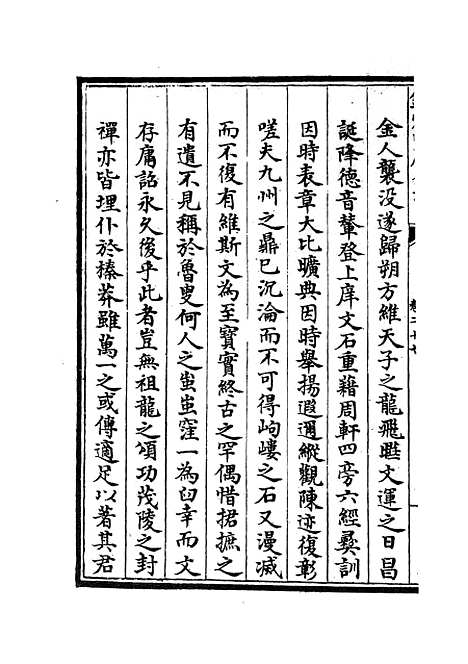 金人襲没遂歸朔方維天子之龍飛甦文運之日昌
誕降德音輦登上庠文石重藉周軒四旁六經彞訓
因時表章大比曠典因時舉揚遐邇縱觀陳迹復彰
嗟夫九州之鼎已沉淪而不可得岣嶁之石又漫滅
而不復有維斯文為至寶實終古之罕偶惜捃摭之
有遺不見稱於魯叟何人之蚩蚩窪一為臼幸而文
存庸詔永久後乎此者豈無祖龍之頌功茂陵之封
禪亦皆埋仆於榛莽雖萬一之或傳適足以著其君